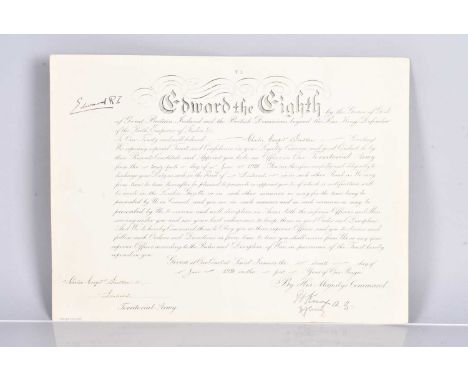 Edward R.I.
Edward the Eighth by the Grace of God
of Great Britain Ireland and the British Dominions beyond the Seas King Defender
of the Faith Emperor of India &c.
To Our Trusty and well beloved Greeting
We reposing especial Trust and Confidence in your Loyalty Courage and good Conduct do by
these Presents Constitute and Appoint you to be an Officer in Our Territorial Army
from the day of June 1936 You are therefore carefully and diligently to
discharge your Duty as such in the Rank of Lieutenant or in such other Rank as We may
from time to time hereafter be pleased to promote or appoint you to of which a notification will
be made in the London Gazette
prescribed by Us in Council and you are in such manner and on such occasions as may be
prescribed by Us to exercise and well discipline in Arms both the inferior Officers and Men
serving under you and use your best endeavours to keep them in good Order and Discipline
And We do hereby Command them to Obey you as their superior Officer and you to Observe and
follow such Orders and Directions as from time to time you shall receive from Us or any your
superior Officer according to the Rules and Discipline of War in pursuance of the Trust hereby
reposed in you
Given at Our Court at Saint James's the day of
June 1936 in the first Year of Our Reign
By His Majesty's Command
Lieutenant
Territorial Army